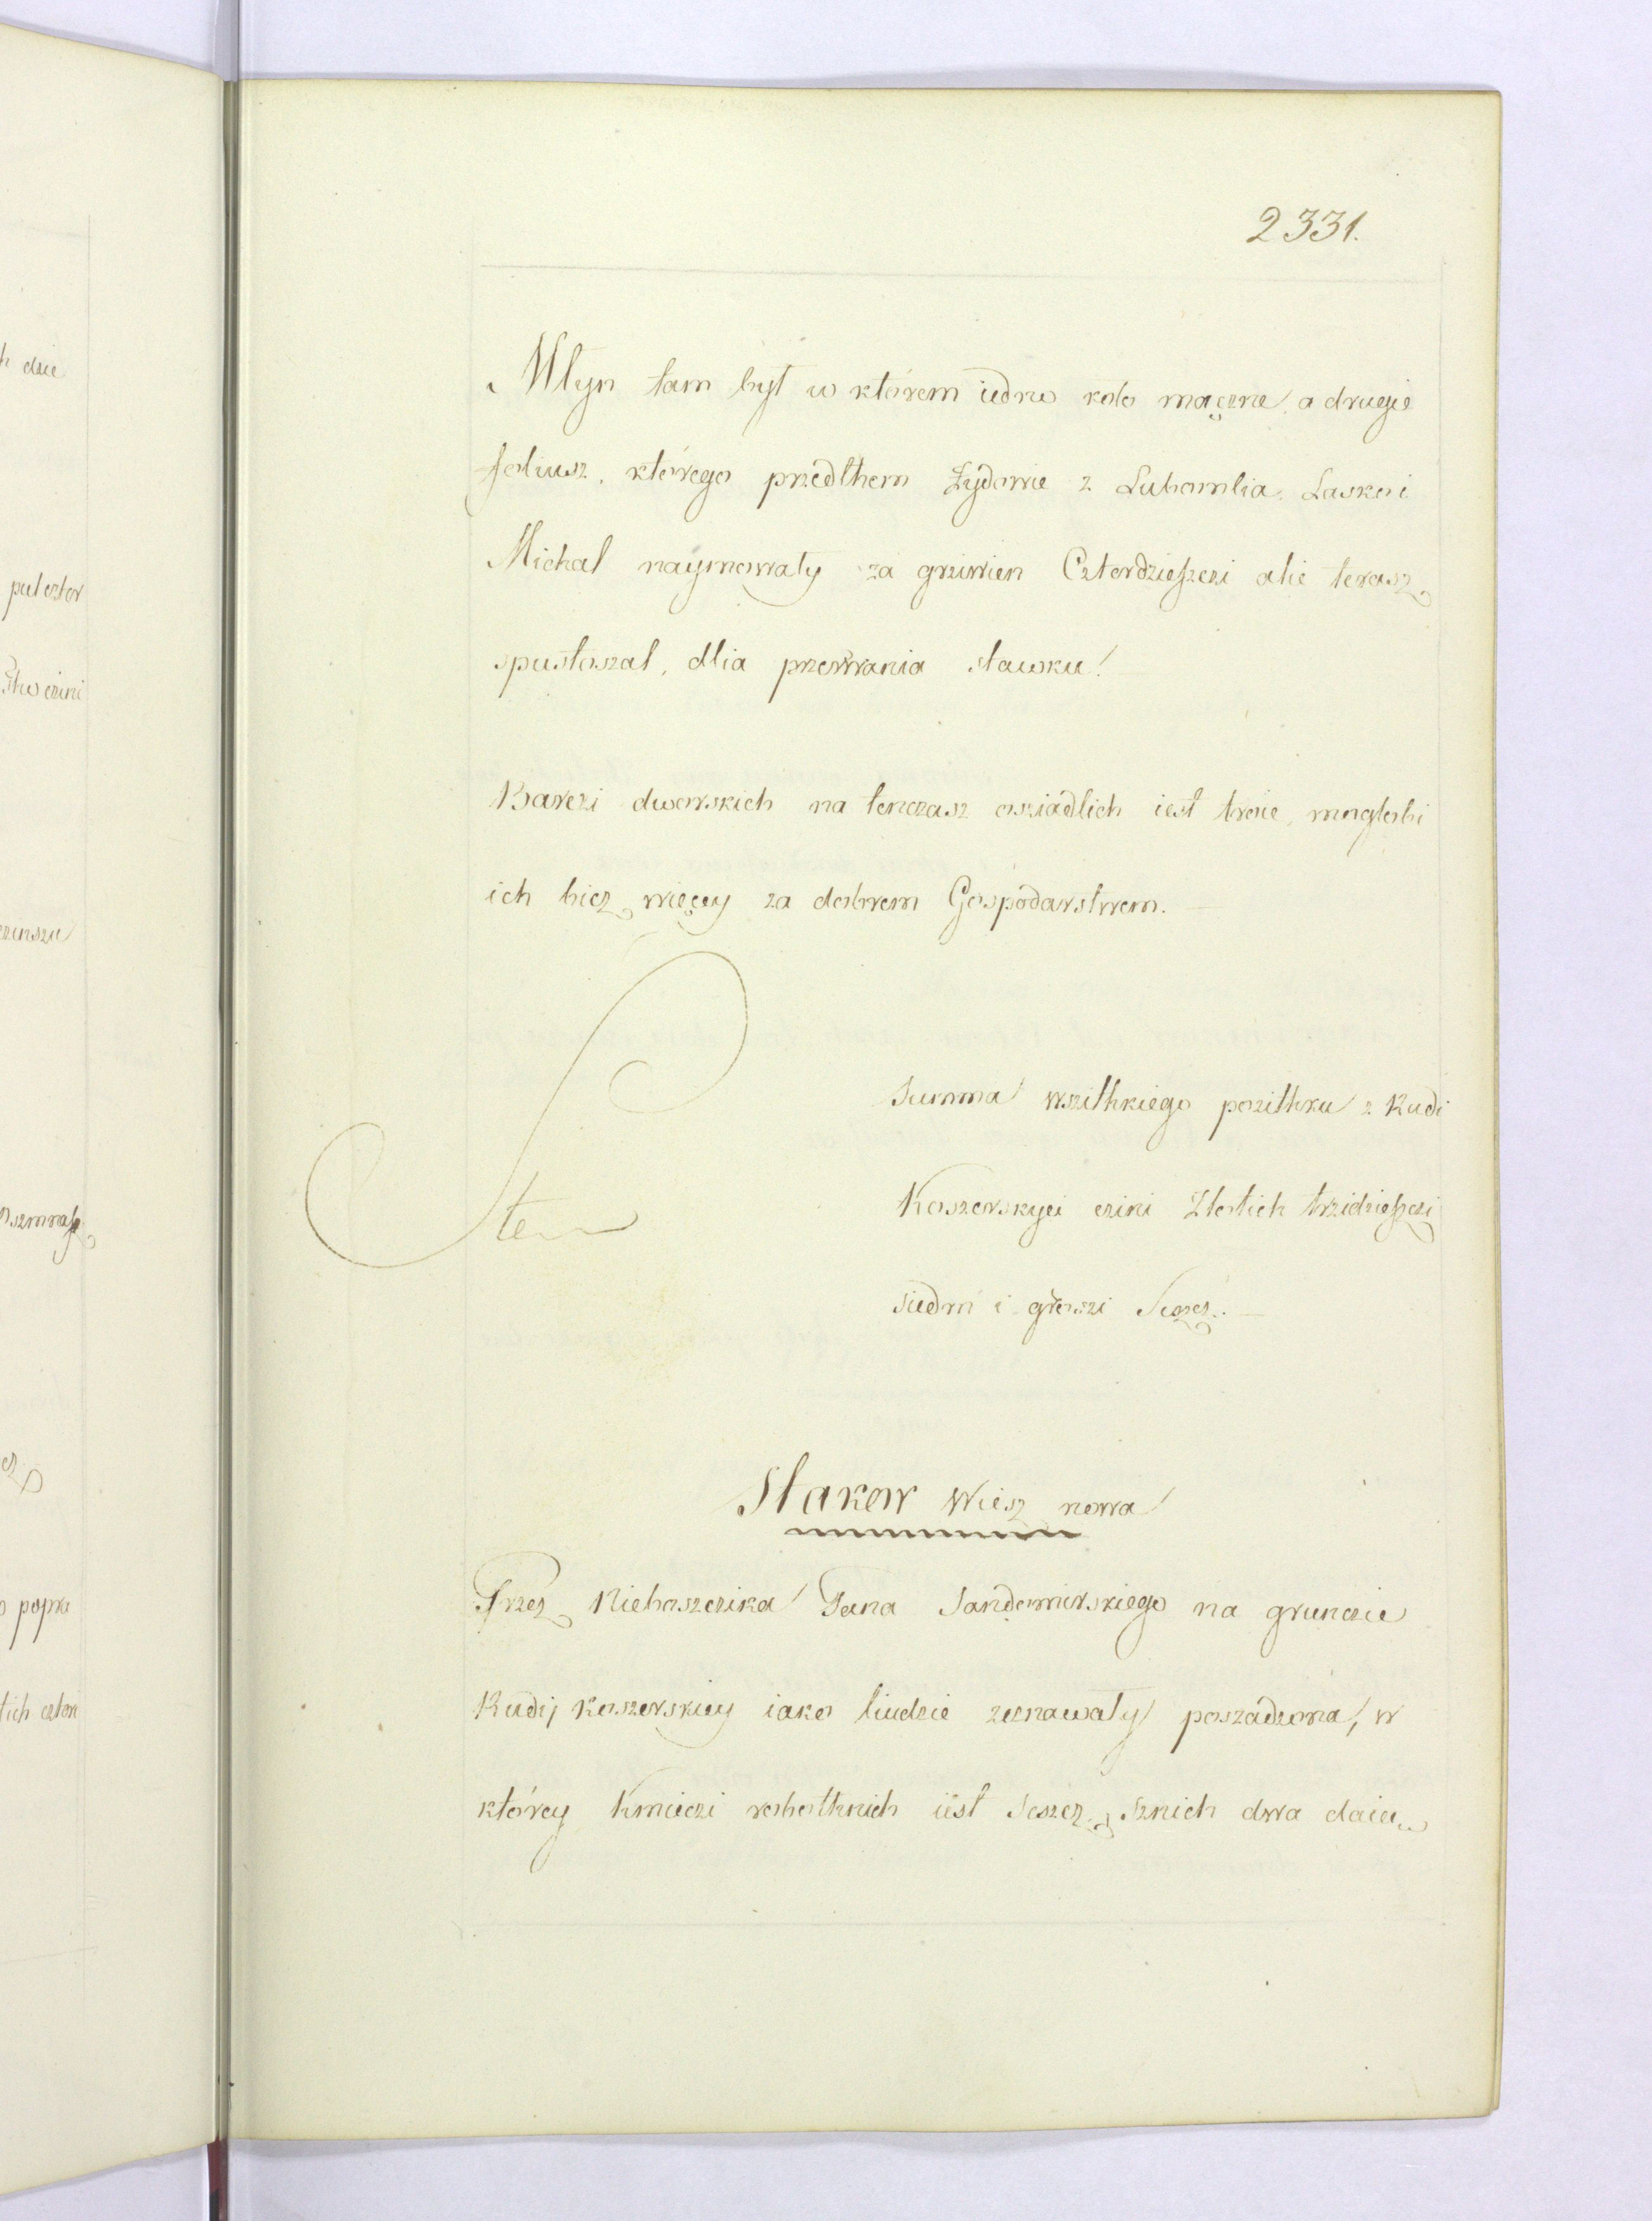 2331.
Młyn tam był w którem iedno koło mączne a drugie
foliusz, którego przedthem Żydowie z Lubomlia Lasko i
Michal naymowały za grziwien Czterdzieszczi alie terasz
spustoszał, dlia przerwania stawku!
Barczi dworskich na tenczasz osziadlich iest troie, mogłobi
ich bicz więcy za dobrem Gospodarstwem.
Summa wszithkiego pozithku z Rudi
Koszerskyei czini Złotich trzidzieszczi
siedm i groszi Szescz.
Stakow Wiesz nowa
Przez Nieboszczika Pana Sandomirskiego na grunczie
Rudij Koszerskiey iako liudzie zeznawały poszadzona, w
którey Kmieczi robothnich iest Szescz, sznich dwa daią
h dzie
pul czter
czinszu
popra
tich czteri